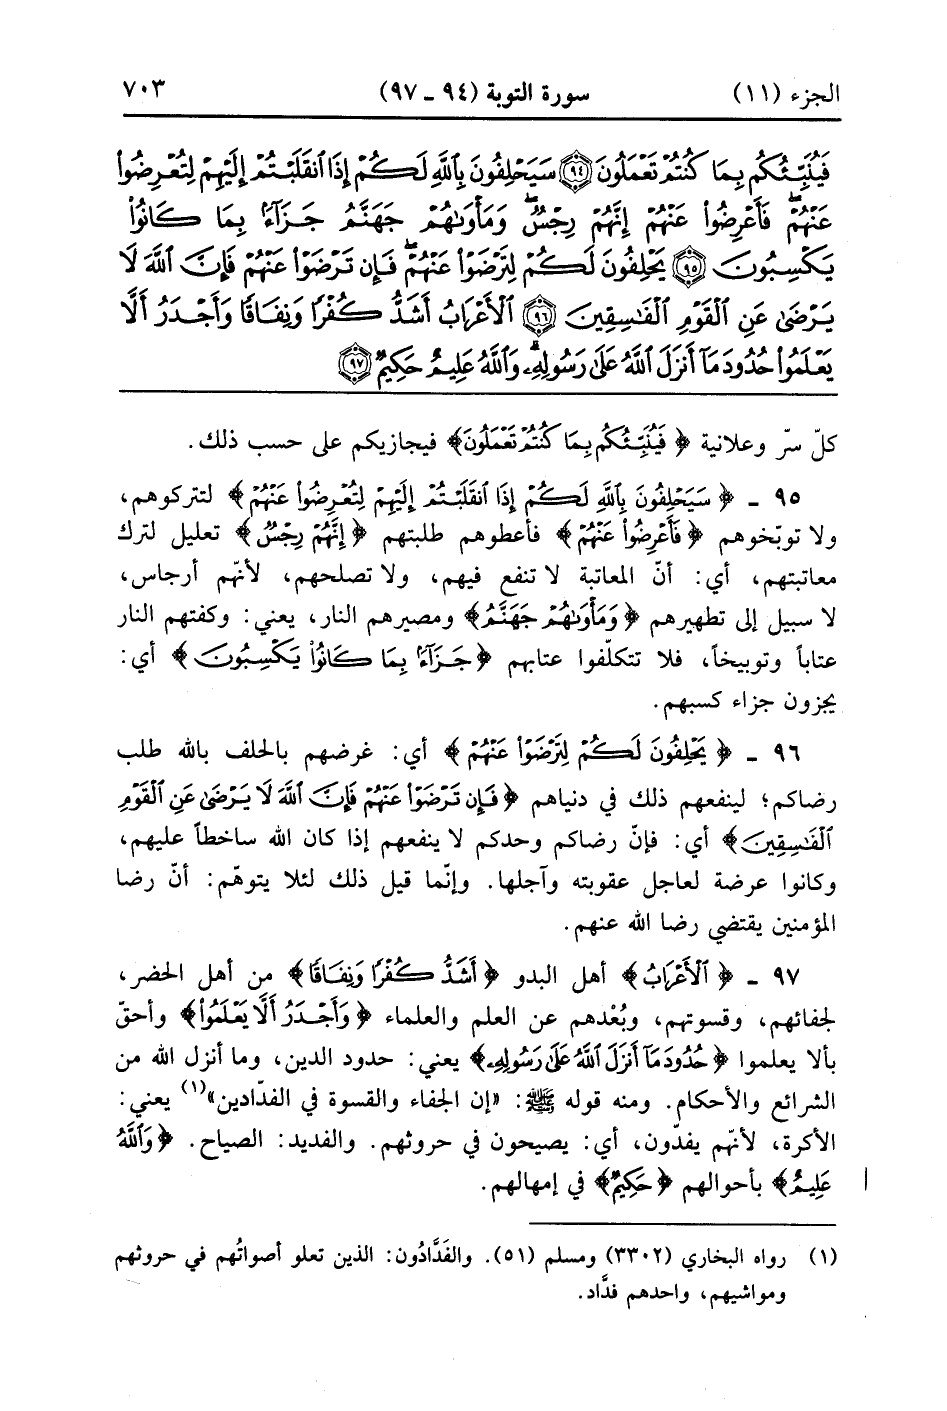 الجزء (١١) سورة التوبة (٩٤ ـ ٩٧) ٧٠٣
فَيُنَبِّئُكُم بِمَا كُنتُمْ تَعْمَلُونَ ۝٩٤ سَيَحْلِفُونَ بِاللَّهِ لَكُمْ إِذَا انقَلَبْتُمْ إِلَيْهِمْ لِتُعْرِضُوا
عَنْهُمْ ۖ فَأَعْرِضُوا عَنْهُمْ إِنَّهُمْ رِجْسٌ ۖ وَمَأْوَىٰهُمْ جَهَنَّمُ جَزَآءً بِمَا كَانُوا
يَكْسِبُونَ ۝٩٥ يَحْلِفُونَ لَكُمْ لِتَرْضَوْا عَنْهُمْ ۖ فَإِن تَرْضَوْا عَنْهُمْ فَإِنَّ اللَّهَ لَا
يَرْضَىٰ عَنِ الْقَوْمِ الْفَٰسِقِينَ ۝٩٦ الْأَعْرَابُ أَشَدُّ كُفْرًا وَنِفَاقًا وَأَجْدَرُ أَلَّا
يَعْلَمُوا حُدُودَ مَآ أَنزَلَ اللَّهُ عَلَىٰ رَسُولِهِۦ ۗ وَاللَّهُ عَلِيمٌ حَكِيمٌ ۝٩٧
كلّ سرّ وعلانية ﴿فَيُنَبِّئُكُم بِمَا كُنتُمْ تَعْمَلُونَ﴾ فيجازيكم على حسب ذلك.
٩٥ ـ ﴿سَيَحْلِفُونَ بِاللَّهِ لَكُمْ إِذَا انقَلَبْتُمْ إِلَيْهِمْ لِتُعْرِضُوا عَنْهُمْ﴾ لتتركوهم،
ولا توبّخوهم ﴿فَأَعْرِضُوا عَنْهُمْ﴾ فأعطوهم طلبتهم ﴿إِنَّهُمْ رِجْسٌ﴾ تعليل لترك
معاتبتهم، أي: أنّ المعاتبة لا تنفع فيهم، ولا تصلحهم، لأنّهم أرجاس،
لا سبيل إلى تطهيرهم ﴿وَمَأْوَىٰهُمْ جَهَنَّمُ﴾ ومصيرهم النار، يعني: وكفتهم النار
عتاباً وتوبيخاً، فلا تتكلّفوا عتابهم ﴿جَزَآءً بِمَا كَانُوا يَكْسِبُونَ﴾ أي:
يجزون جزاء كسبهم.
٩٦ ـ ﴿يَحْلِفُونَ لَكُمْ لِتَرْضَوْا عَنْهُمْ﴾ أي: غرضهم بالحلف بالله طلب
رضاكم؛ لينفعهم ذلك في دنياهم ﴿فَإِن تَرْضَوْا عَنْهُمْ فَإِنَّ اللَّهَ لَا يَرْضَىٰ عَنِ الْقَوْمِ
الْفَٰسِقِينَ﴾ أي: فإنّ رضاكم وحدكم لا ينفعهم إذا كان الله ساخطاً عليهم،
وكانوا عرضة لعاجل عقوبته وآجلها. وإنّما قيل ذلك لئلا يتوهّم: أنّ رضا
المؤمنين يقتضي رضا الله عنهم.
٩٧ ـ ﴿الْأَعْرَابُ﴾ أهل البدو ﴿أَشَدُّ كُفْرًا وَنِفَاقًا﴾ من أهل الحضر،
لجفائهم، وقسوتهم، وبُعْدهم عن العلم والعلماء ﴿وَأَجْدَرُ أَلَّا يَعْلَمُوا﴾ وأحقّ
بألا يعلموا ﴿حُدُودَ مَآ أَنزَلَ اللَّهُ عَلَىٰ رَسُولِهِۦ﴾ يعني: حدود الدين، وما أنزل الله من
الشرائع والأحكام. ومنه قوله ﷺ: «إن الجفاء والقسوة في الفدّادين»(١) يعني:
الأكرة، لأنّهم يفدّون، أي: يصيحون في حروثهم. والفديد: الصياح. ﴿وَاللَّهُ
عَلِيمٌ﴾ بأحوالهم ﴿حَكِيمٌ﴾ في إمهالهم.
(١) رواه البخاري (٣٣٠٢) ومسلم (٥١). والفَدَّادُون: الذين تعلو أصواتُهم في حروثهم
ومواشيهم، واحدهم فدَّاد.